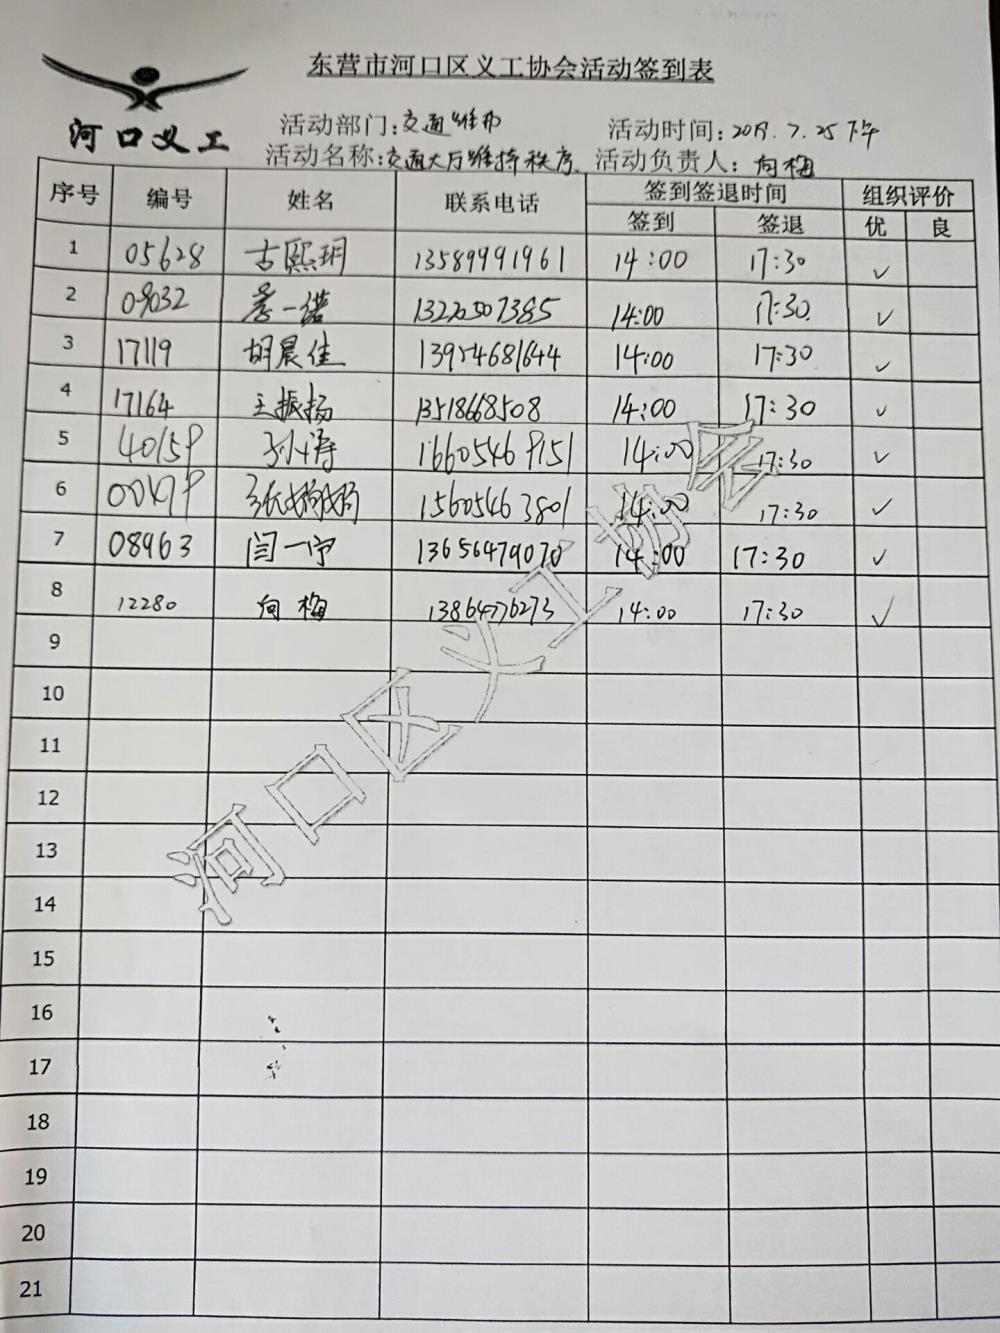 东营市河口区义工协会活动签到表
河口义工
活动部门:交通 活动时间:2019.7.25下午
活动名称:交通大厅维持秩序. 活动负责人:向梅
序号 编号 姓名 联系电话 签到签退时间 组织评价
签到 签退 优 良
1 05628 古熙玥 13589991961 14:00 17:30 ✓
2 09032 一诺 14:00 17:30 ✓
3 17119 胡晨佳 14:00 17:30 ✓
4 17164 王振扬 13518668508 14:00 17:30 ✓
5 40159 孙涛 16605469151 14:00 17:30 ✓
6 15605463801 14:00 17:30 ✓
7 08963 闫一宁 13656479070 14:00 17:30 ✓
8 12280 向梅 13864776273 14:00 17:30 ✓
9
10
11
12
13
14
15
16
17
18
19
20
21
河口区义工协会